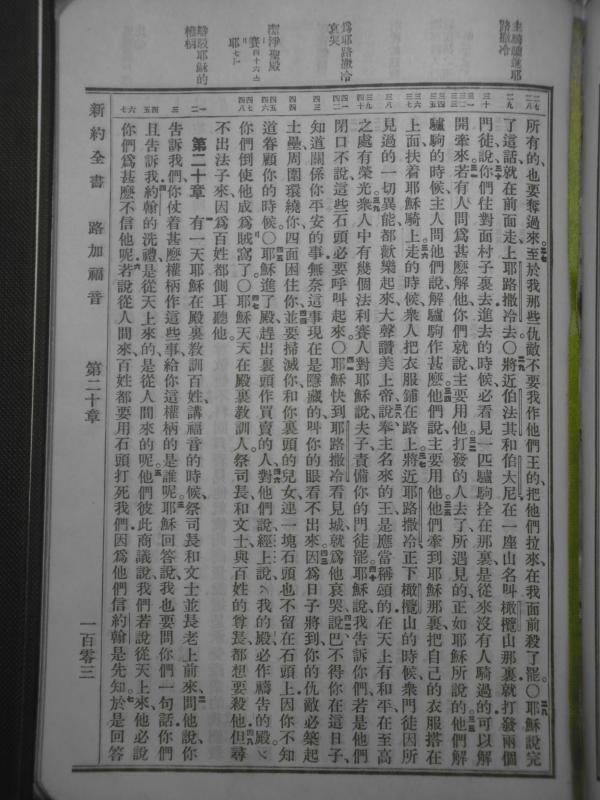 主騎驢進耶
路撒冷
爲耶路撒冷
哀哭
潔淨聖殿
賽四十六
耶七十一
詰駁耶穌的
權柄
所有的、也要奪過來。至於我那些仇敵不要我作他們王的、把他們拉來、在我面前殺了罷。〇耶穌說完
了這話就在前面走上耶路撒冷去。〇將近伯法其和伯大尼在一座山名叫橄欖山那裏就打發兩個
門徒說、你們往對面村子裏去、進去的時候、必看見一匹驢駒拴在那裏是從來沒有人騎過的、可以解
開牽來。若有人問爲甚麽解他、你們就說、主要用他。打發的人去了、所遇見的正如耶穌所說的。他們解
驢駒的時候、主人問他們說、解驢駒作甚麽。他們說、主要用他。他們牽到耶穌那裏、把自己的衣服搭在
上面、扶着耶穌騎上。走的時候、衆人把衣服鋪在路上。將近耶路撒冷、正下橄欖山的時候、衆門徒因所
見過的一切異能、都歡樂起來、大聲讚美上帝、說、奉主名來的王、是應當稱頌的、在天上有和平、在至高
之處有榮光。衆人中有幾個法利賽人對耶穌說、夫子、責備你的門徒罷。耶穌說、我告訴你們、若是他們
閉口不說、這些石頭必要呼叫起來。〇耶穌快到耶路撒冷看見城、就爲他哀哭、說、巴不得你在這日子、
知道關係你平安的事、無奈這事現在是隱藏的、叫你的眼看不出來。因爲日子將到、你的仇敵必築起
土壘周圍環繞你、四面困住你、並要掃滅你、和你裏頭的兒女、連一塊石頭也不留在石頭上、因你不知
道眷顧你的時候。〇耶穌進了殿、趕出裏頭作買賣的人、對他們說、經上說、我的殿必作禱告的殿、
你們倒使他成爲賊窩了。〇耶穌天天在殿裏教訓人、祭司長和文士與百姓的尊長都想要殺他、但尋
不出法子來、因爲百姓都側耳聽他。
第二十章　有一天耶穌在殿裏教訓百姓、講福音的時候、祭司長和文士並長老上前來、問他說、你
告訴我們、你仗着甚麽權柄作這些事、給你這權柄的是誰呢。耶穌回答說、我也要問你們一句話、你們
且告訴我、約翰的洗禮、是從天上來的、是從人間來的呢。他們彼此商議說、我們若說從天上來、他必說
你們爲甚麽不信他呢。若說從人間來、百姓都要用石頭打死我們、因爲他們信約翰是先知。於是回答
新約全書　路加福音　第二十章　一百零三